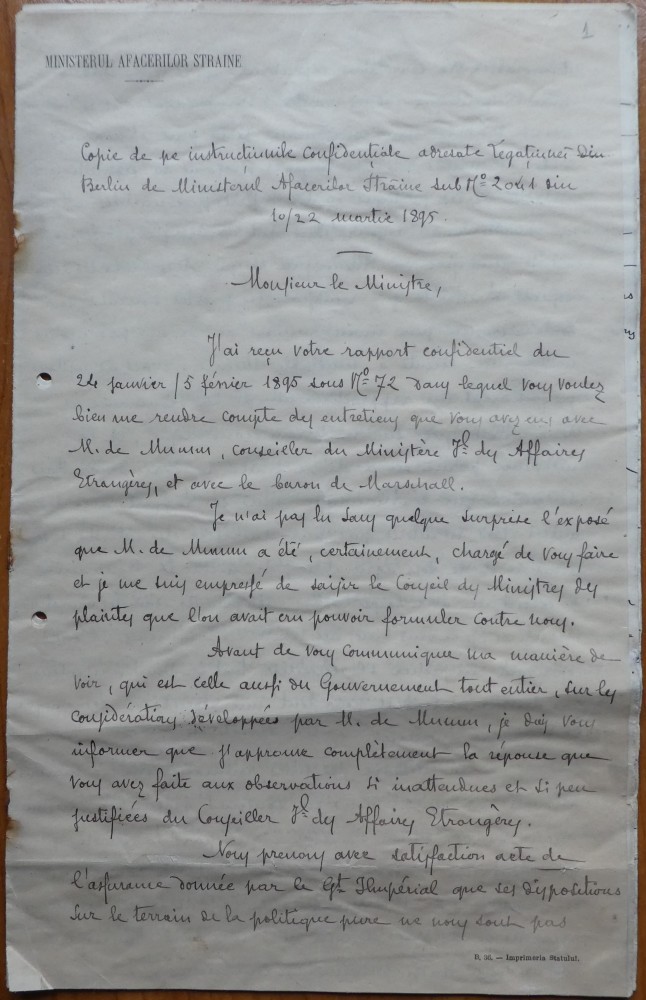 1
MINISTERUL AFACERILOR STRAINE
Copie de pe instrucțiunile confidențiale adresate Legațiunei din
Berlin de Ministerul Afacerilor Straine sub No 2041 din
10/22 martie 1895.
Monsieur le Ministre,
J'ai reçu votre rapport confidentiel du
24 janvier / 5 février 1895 sous No 72 dans lequel vous voulez
bien me rendre compte des entretiens que vous avez eus avec
M. de Mumm, conseiller du Ministère Il des Affaires
Etrangères, et avec le baron de Marschall.
Je n'ai pas lu sans quelque surprise l'exposé
que M. de Mumm a été, certainement, chargé de vous faire
et je me suis empressé de saisir le Conseil des Ministres des
plaintes que l'on avait cru pouvoir formuler contre nous.
Avant de vous communiquer ma manière de
voir, qui est celle aussi du Gouvernement tout entier, sur les
considérations développées par M. de Mumm, je dois vous
informer que j'approuve complètement la réponse que
vous avez faite aux observations si inattendues et si peu
justifiées du Conseiller Il des Affaires Etrangères.
Nous prenons avec satisfaction acte de
l'assurance donnée par le Gt Impérial que ses dispositions
sur le terrain de la politique pure ne nous sont pas
D. 56. — Imprimeria Statului.